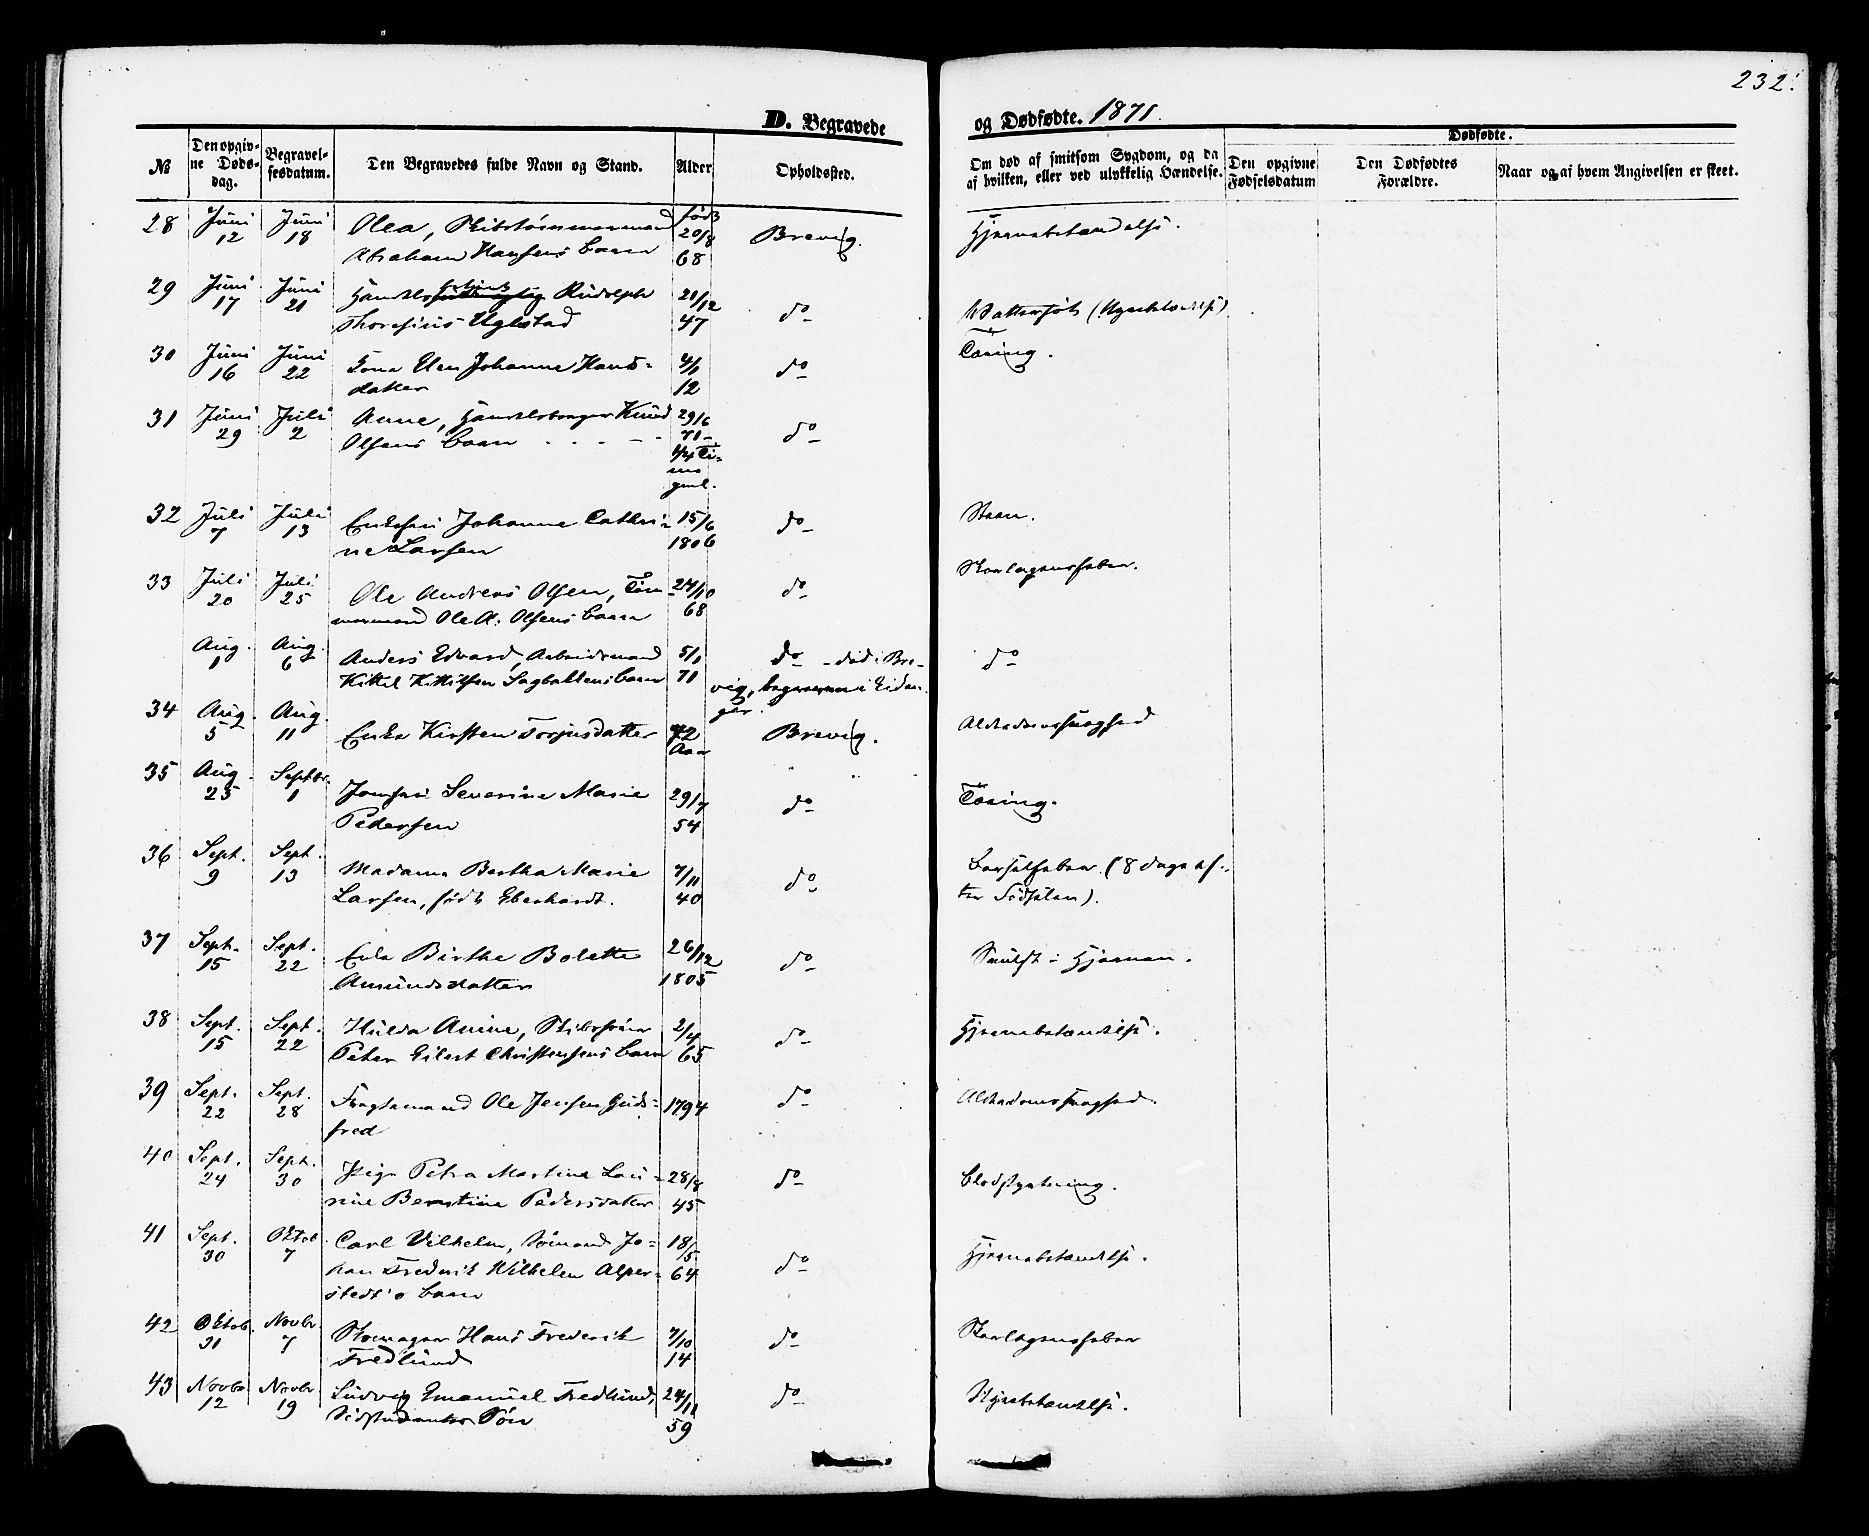 232.
D. Begravede og Dødfødte. 1871.
№
Den opgiv-
ne Døds-
dag.
Begravel-
sesdatum.
Den Begravedes fulde Navn og Stand.
Alder
Opholdssted.
Om død af smitsom Sygdom, og da
af hvilken, eller ved ulykkelig Hændelse.
Dødfødte.
Den opgivne
Fødselsdatum
Den Dødfødtes
Forældre.
Naar og af hvem Angivelsen er skeet.
28 Juni 12 Juni 18 Olea, Skibstømmermand født 20/8 68 Brevig. Hjernebetændelse.
Abraham Hansens Barn
29 Juni 17 Juni 21 Handels Rudolph 21/12 47 do Vattersot
Thoresius Uglestad
30 Juni 16 Juni 22 Elen Johanne Hans- 4/1 12 do Tæring.
datter
31 Juni 29 Juli 2 Anne, Knud 29/6 71 do
Olsens Barn
gml.
32 Juli 7 Juli 13 Enkefru Johanne Cathri- 15/6 1806 do Steen.
ne Larsen
33 Juli 20 Juli 25 Ole Andreas Olsen, Töm- 24/10 68 do Skarlagensfeber.
mermand Ole A. Olsens Barn
Aug. 1 Aug. 6 Anders Edvard, Arbeidsmand 5/1 71 do - død i Bre- do
Kittel Kittilsen Sagbakkens Barn
vig, begraven i Eidan-
ger.
34 Aug. 5 Aug. 11 Enke Kirsten Torjusdatter 72 Aar Brevig. Alderdomssvaghed
35 Aug. 25 Septbr. 1 Jomfru Severine Marie 29/7 54 do Tæring.
Pedersen
36 Sept. 9 Sept. 13 Madame Bertha Marie 7/11 40 do Barselfeber (8 dage ef-
Larsen, født Eberhardt.
ter Fødselen).
37 Sept. 15 Sept. 22 Enke Birthe Bolette 26/12 1805 do Svulst i Hjernen.
Amundsdatter
38 Sept. 15 Sept. 22 Hulda Anine, Skibsfører 2/4 65 do Hjernebetændelse.
Peter Eilert Christensens Barn
39 Sept. 22 Sept. 28 Fragtemand Ole Jensen Guds- 1794 do Alderdomssvaghed.
fred
40 Sept. 24 Sept. 30 Pige Petra Martine Lau- 28/8 45 do Blodspytning.
rine Berntine Pedersdatter
41 Sept. 30 Oktob. 7 Carl Vilhelm, Sømand Jo- 18/5 64 do Hjernebetændelse.
han Frederik Wilhelm Alper-
stedt's Barn
42 Oktob. 31 Novbr 7 Skomager Hans Frederik 7/10 14 do Skarlagensfeber
Fredlund
43 Novbr. 12 Novbr. 19 Ludvig Emanuel Fredlund, 24/11 59 do Nyrebetændelse.
Søn